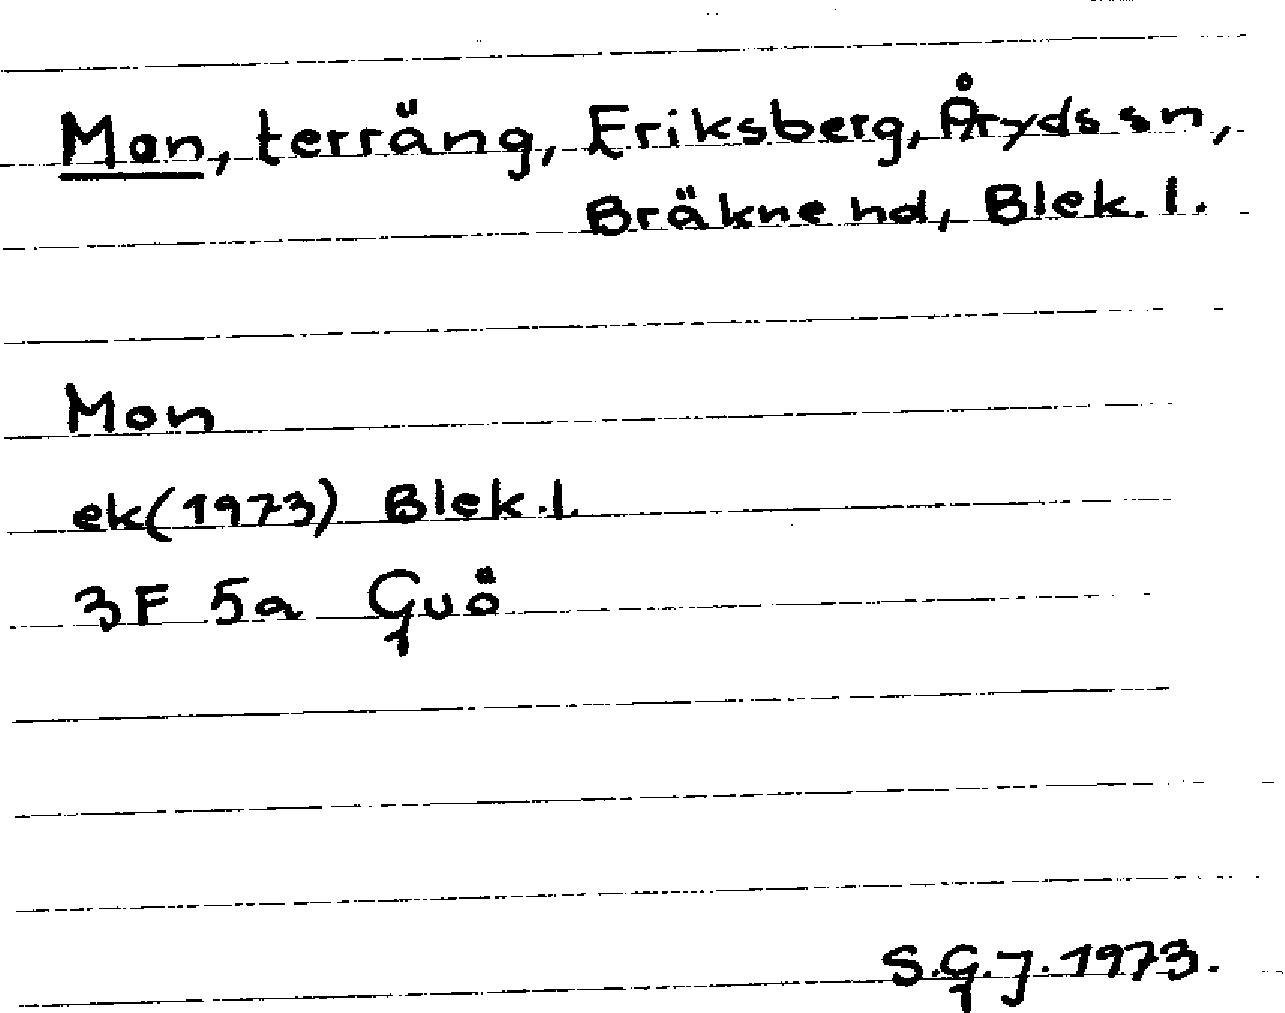 Mon, terräng, Eriksberg, Åryds sn,
Bräkne hd, Blek. l.
Mon
ek(1973) Blek.l.
3F 5a Guö
S.G.J. 1973.